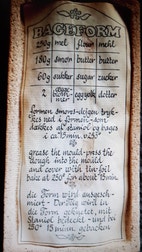 BAGEFORM
250g mel flour mehl
180g smør butter butter
60g sukker sugar zucker
2 æggeblom egg yolk dotter
formen smøres - dejgen tryk-
kes ned i formen - form
dækkes af staniol og bages
i ca 15 min. v. 250°
grease the mould - press the
dough into the mould
and cover with tin foil
bake at 250° for about 15 min
die Form wird ausgeschmi-
ert - Der Teig wird in
die Form gedrückt, mit
Staniol bedeckt - und bei
250° 15 min gebacken